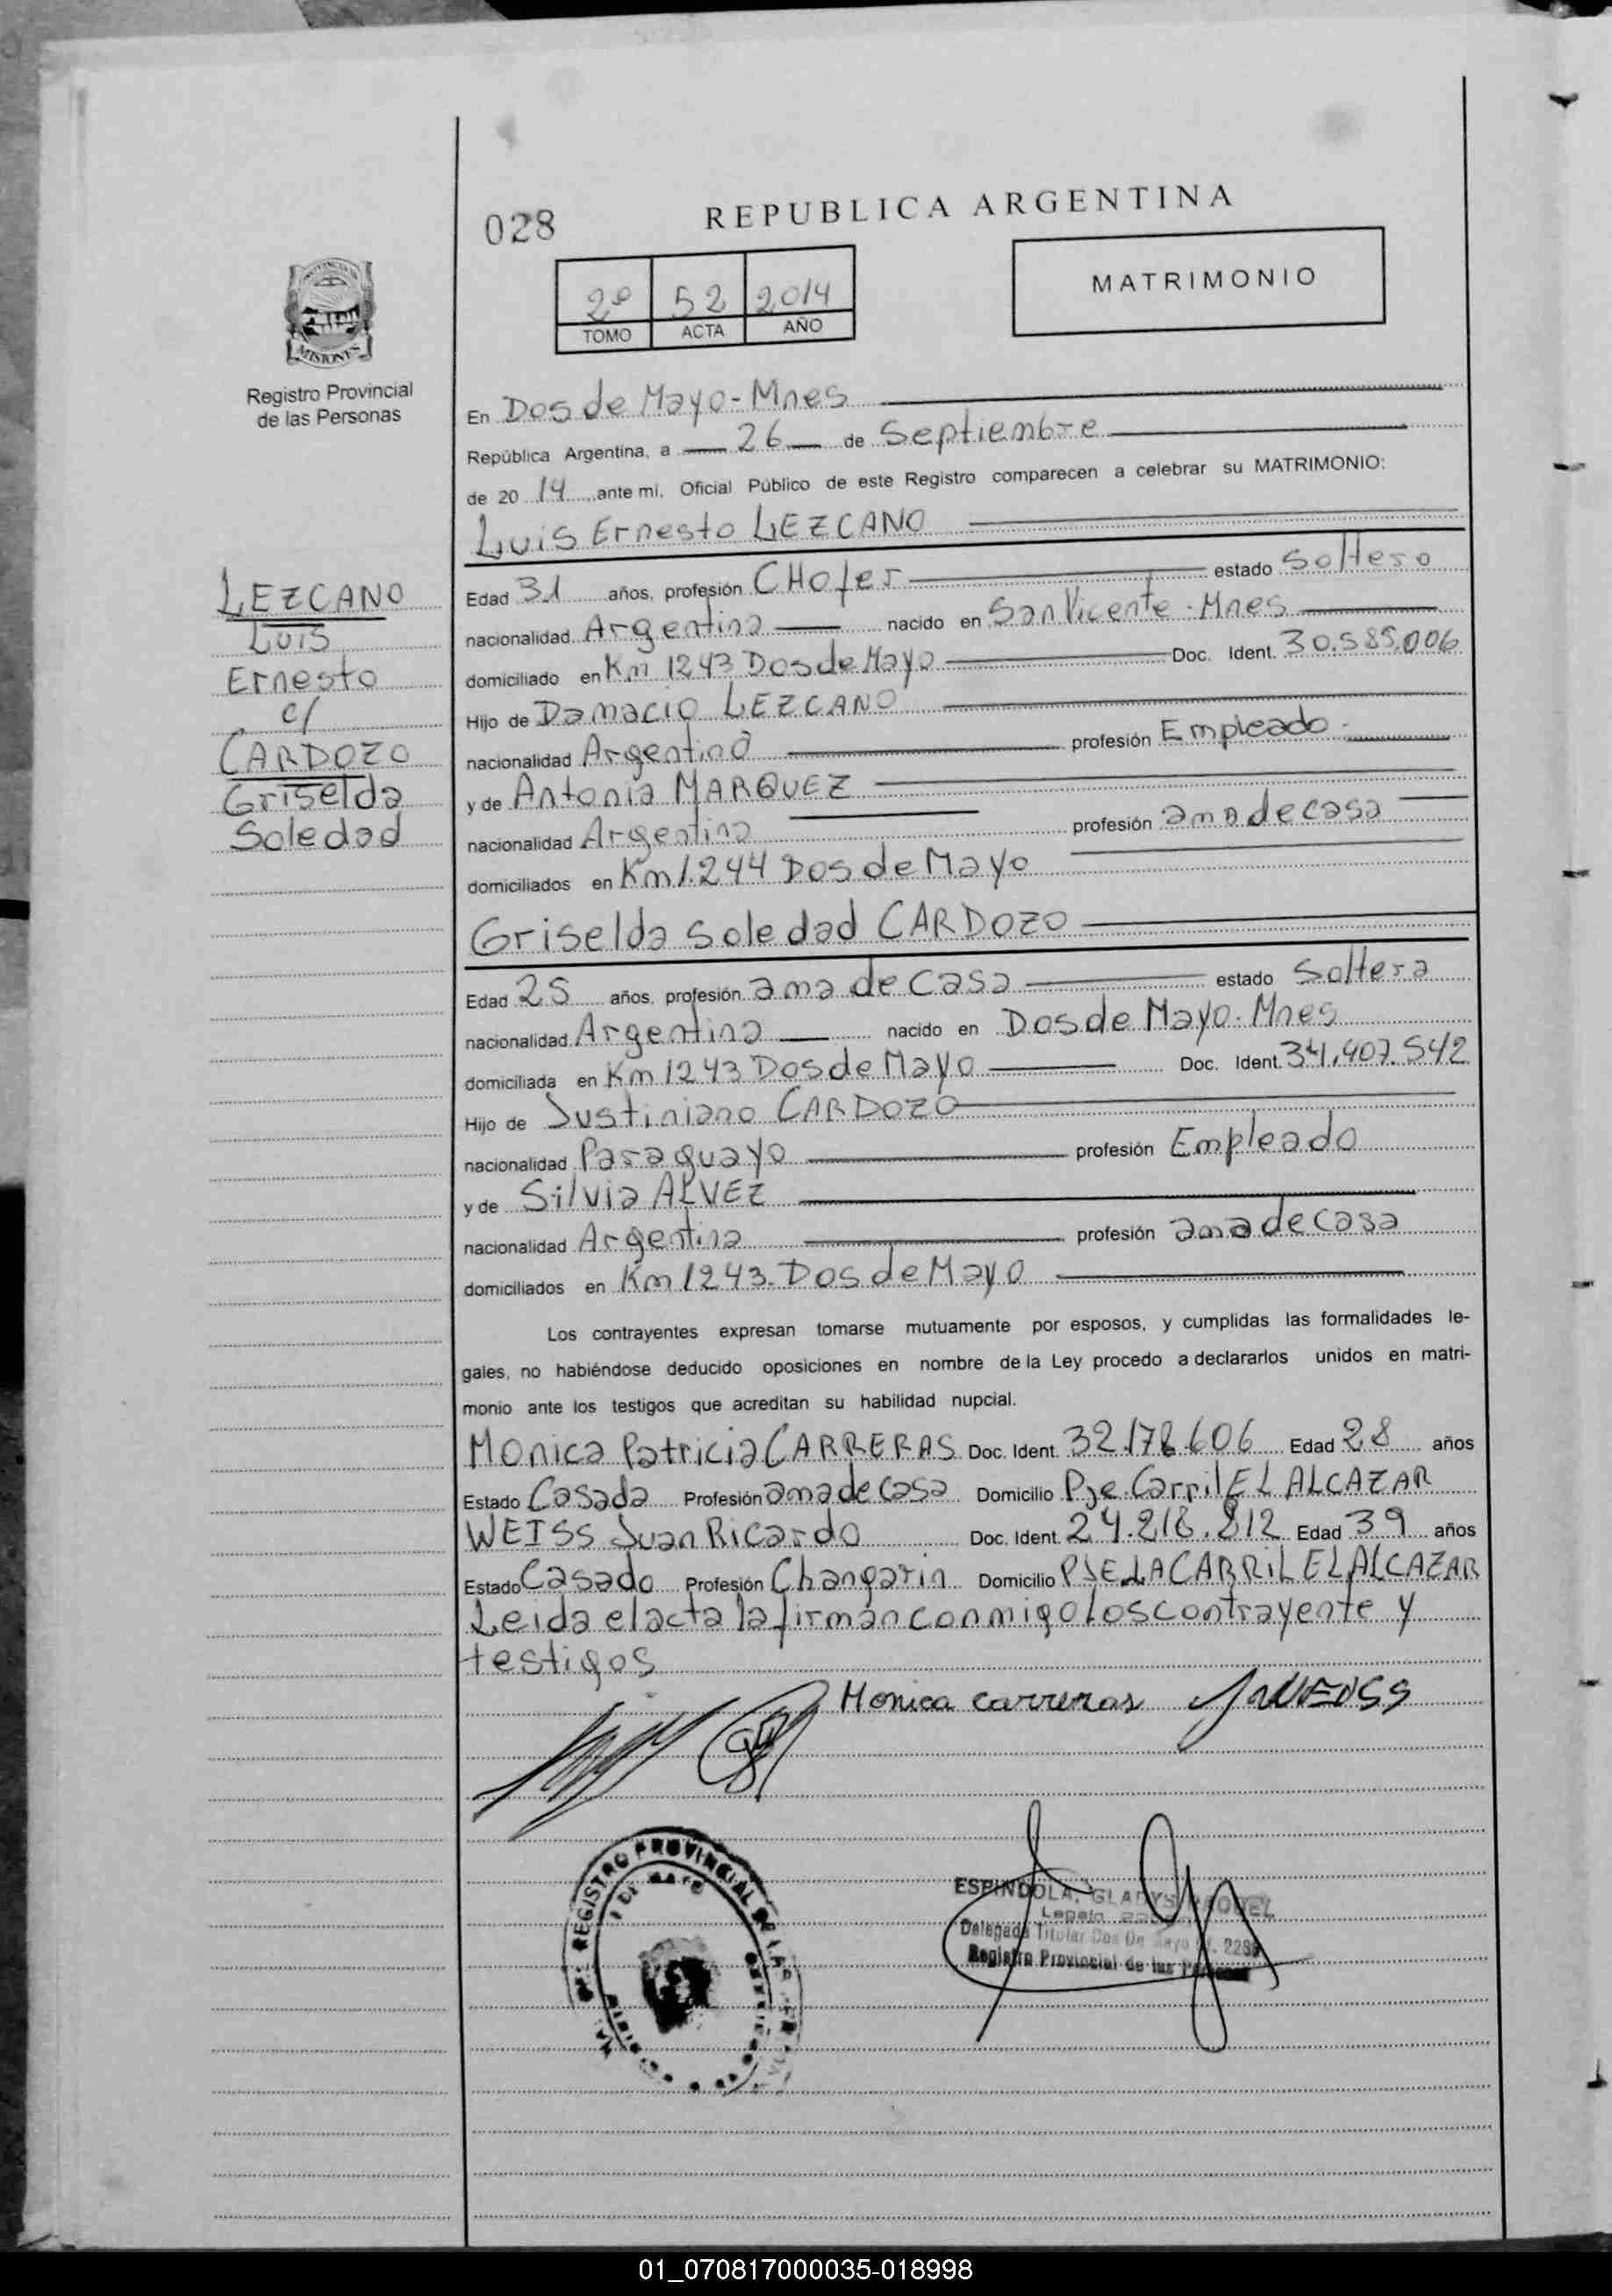 028
REPUBLICA ARGENTINA
2º 52 2014
TOMO ACTA AÑO
MATRIMONIO
PROVINCIA DE
MISIONES
Registro Provincial
de las Personas
En Dos de Mayo - Mnes
República Argentina, a 26 de Septiembre
de 20 14 ante mi, Oficial Público de este Registro comparecen a celebrar su MATRIMONIO:
Luis Ernesto LEZCANO
LEZCANO
Luis
Ernesto
c/
CARDOZO
Griselda
Soledad
Edad 31 años, profesión CHofer estado Soltero
nacionalidad Argentina nacido en San Vicente - Mnes
domiciliado en Km 1243 Dos de Mayo Doc. Ident. 30.585.006
Hijo de Damacio LEZCANO
nacionalidad Argentina profesión Empleado
y de Antonia MARQUEZ
nacionalidad Argentina profesión ama de casa
domiciliados en Km 1.244 Dos de Mayo
Griselda Soledad CARDOZO
Edad 25 años, profesión ama de casa estado Soltera
nacionalidad Argentina nacido en Dos de Mayo - Mnes
domiciliada en Km 1243 Dos de Mayo Doc. Ident. 34.407.542
Hijo de Justiniano CARDOZO
nacionalidad Paraguayo profesión Empleado
y de Silvia ALVEZ
nacionalidad Argentina profesión ama de casa
domiciliados en Km 1243. Dos de Mayo
Los contrayentes expresan tomarse mutuamente por esposos, y cumplidas las formalidades le-
gales, no habiéndose deducido oposiciones en nombre de la Ley procedo a declararlos unidos en matri-
monio ante los testigos que acreditan su habilidad nupcial.
Monica Patricia CARRERAS Doc. Ident. 32.178.606 Edad 28 años
Estado Casada Profesión ama de casa Domicilio Pje. Carril EL ALCAZAR
WEISS Juan Ricardo Doc. Ident. 24.218.812 Edad 39 años
Estado Casado Profesión Changarin Domicilio PJE LA CARRIL EL ALCAZAR
Leida el acta la firman conmigo Los contrayente y
testigos
Monica carreras
REGISTRO PROVINCIAL DE LAS
ESPINDOLA, GLADYS RAQUEL
Legajo
Delegada Titular Dos De Mayo
Registro Provincial de las Personas
01_070817000035-018998